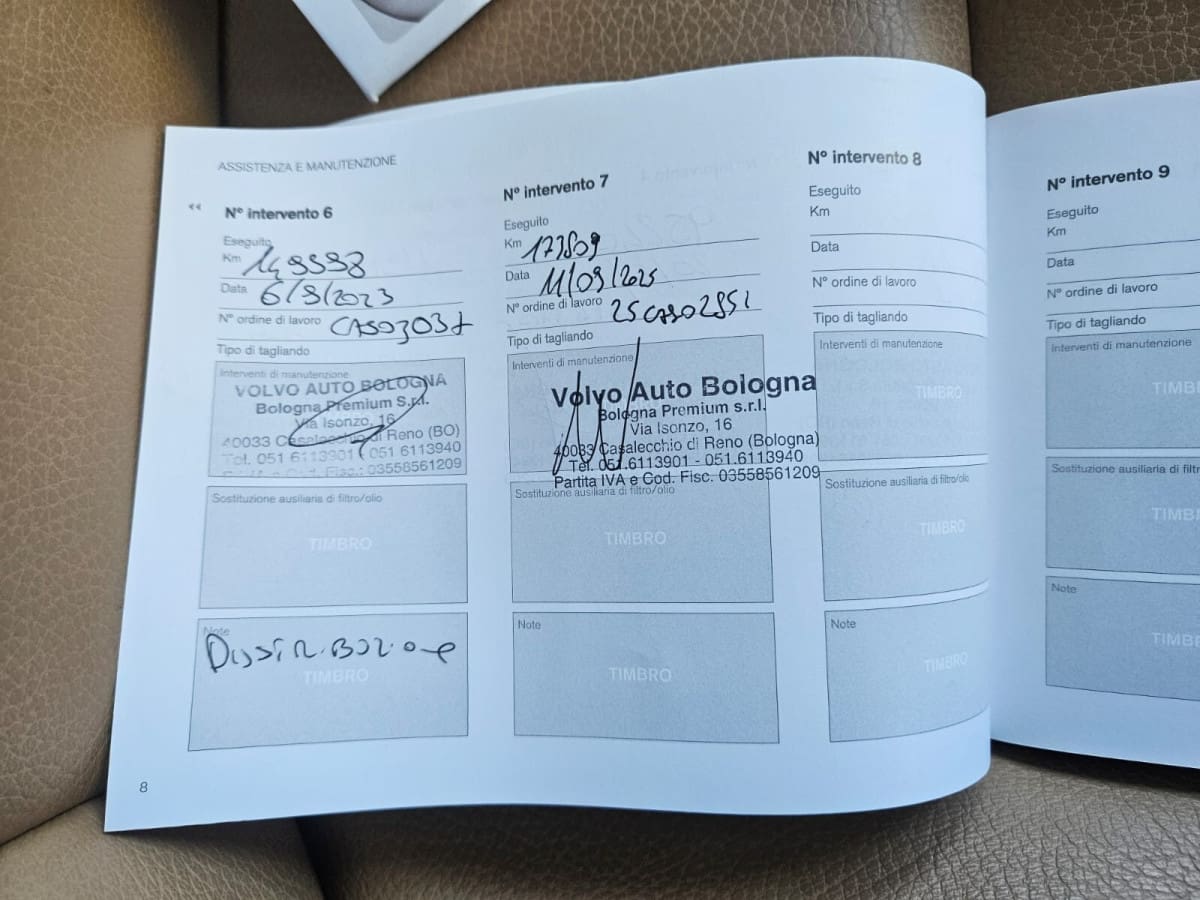 ASSISTENZA E MANUTENZIONE
N° intervento 6
Eseguito
Km 149998
Data 6/9/2023
N° ordine di lavoro
Tipo di tagliando
Interventi di manutenzione
VOLVO AUTO BOLOGNA
Bologna Premium S.r.l.
Via Isonzo, 16
40033 Casalecchio di Reno (BO)
Tel. 051 6113901 051 6113940
Fisc.: 03558561209
Sostituzione ausiliaria di filtro/olio
TIMBRO
Note
TIMBRO
8
N° intervento 7
Eseguito
Km 173809
Data 11/09/2025
N° ordine di lavoro
Tipo di tagliando
Interventi di manutenzione
Volvo Auto Bologna
Bologna Premium s.r.l.
Via Isonzo, 16
40033 Casalecchio di Reno (Bologna)
Tel. 051.6113901 - 051.6113940
Partita IVA e Cod. Fisc. 03558561209
Sostituzione ausiliaria di filtro/olio
TIMBRO
Note
TIMBRO
N° intervento 8
Eseguito
Km
Data
N° ordine di lavoro
Tipo di tagliando
Interventi di manutenzione
TIMBRO
Sostituzione ausiliaria di filtro/olio
TIMBRO
Note
TIMBRO
N° intervento 9
Eseguito
Km
Data
N° ordine di lavoro
Tipo di tagliando
Interventi di manutenzione
TIMB
Sostituzione ausiliaria di filt
TIMB
Note
TIMB